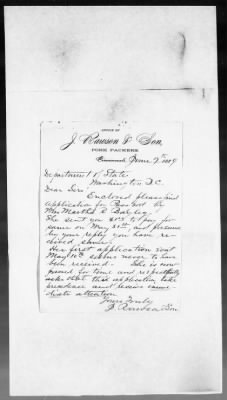 OFFICE OF
J. Rawson & Son,
PORK PACKERS
Cincinnati, June 7th 1889
Department of State
Washington D.C.
Dear Sirs: Enclosed please find
application for Passport for
Mrs Martha E.
She sent you to pay for
same on May 25th, and presume
by your reply you have re-
ceived same.
Her first application sent
May 10th seems never to have
been received. She is now
pressed for time and respectfully
asks that this application take
precedence and receive imme-
diate attention
Yours Truly
J. Rawson & Son